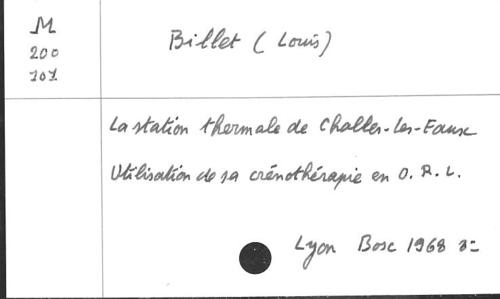 M
200
107
Billet (Louis)
La station thermale de Challes-les-Eaux
Utilisation de sa crénothérapie en O. R. L.
Lyon Bosc 1968 8=